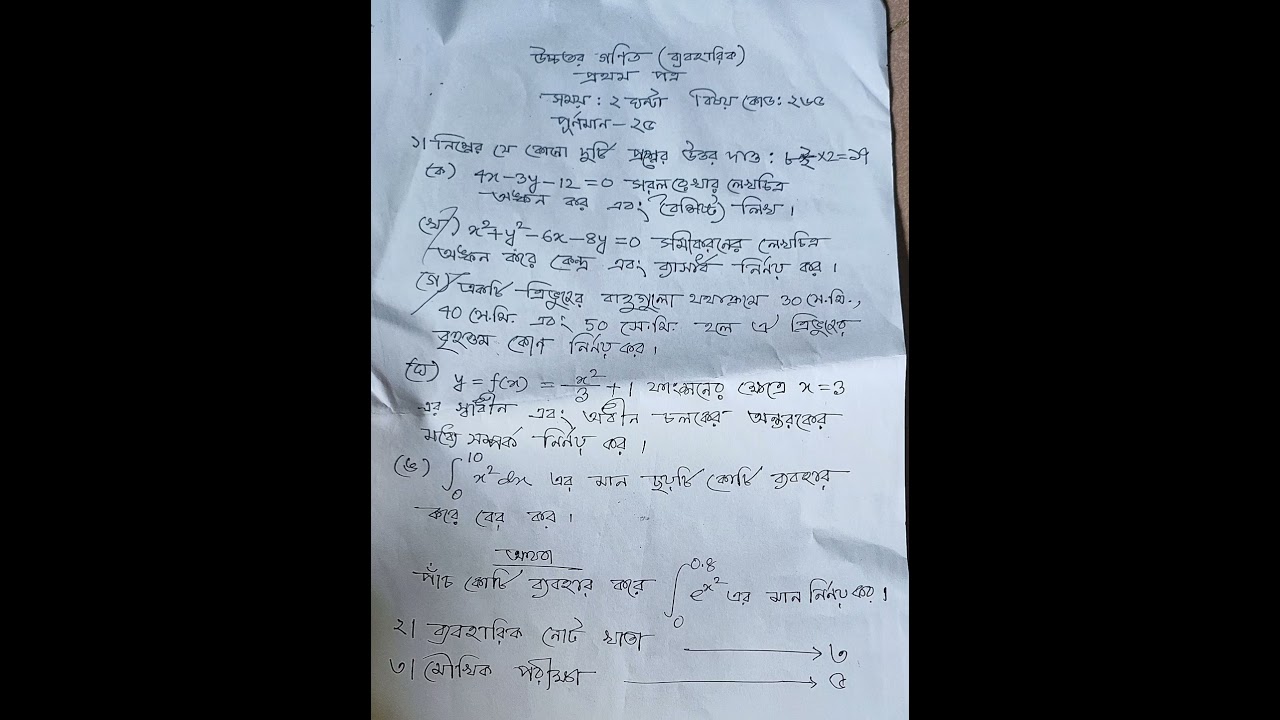 উচ্চতর গণিত (ব্যবহারিক)
প্রথম পত্র
সময়: ২ ঘন্টা বিষয় কোড: ২৬৫
পূর্নমান - ২৫
১। নিম্নের যে কোনো দুটি প্রশ্নের উত্তর দাও:
(ক) 4x-3y-12=0 সরলরেখার লেখচিত্র
অঙ্কন কর এবং বৈশিষ্ট্য লিখ।
(খ) x²+y²-6x-8y=0 সমীকরনের লেখচিত্র
অঙ্কন করে কেন্দ্র এবং ব্যাসার্ধ নির্নয় কর।
(গ) একটি ত্রিভুজের বাহুগুলো যথাক্রমে 30 সে.মি.,
40 সে.মি. এবং 50 সে.মি. হলে ঐ ত্রিভুজের
বৃহত্তম কোণ নির্নয় কর।
(ঘ) y = f(x) = x²/3 + 1 ফাংশনের ক্ষেত্রে x = 3
এর স্বাধীন এবং অধীন চলকের অন্তরকের
মধ্যে সম্পর্ক নির্নয় কর।
(ঙ) ∫₀¹⁰ x² dx এর মান ছয়টি কোটি ব্যবহার
করে বের কর।
অথবা
পাঁচ কোটি ব্যবহার করে ∫₀^0.8 e^x² এর মান নির্নয় কর।
২। ব্যবহারিক নোট খাতা → ৩
৩। মৌখিক পরীক্ষা → ৫